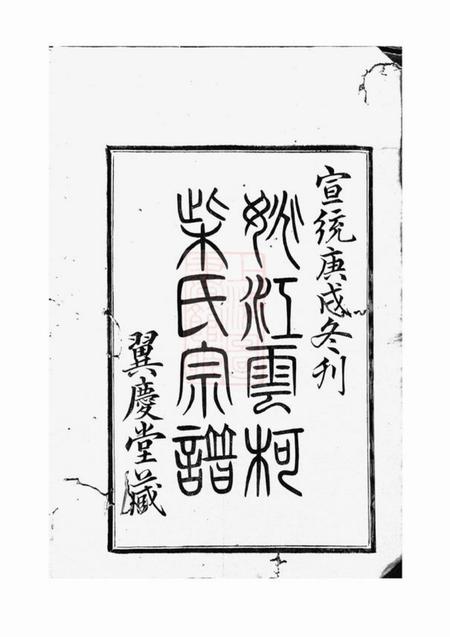 宣統庚戌冬刋
姚江雲柯
柴氏宗譜
翼慶堂藏